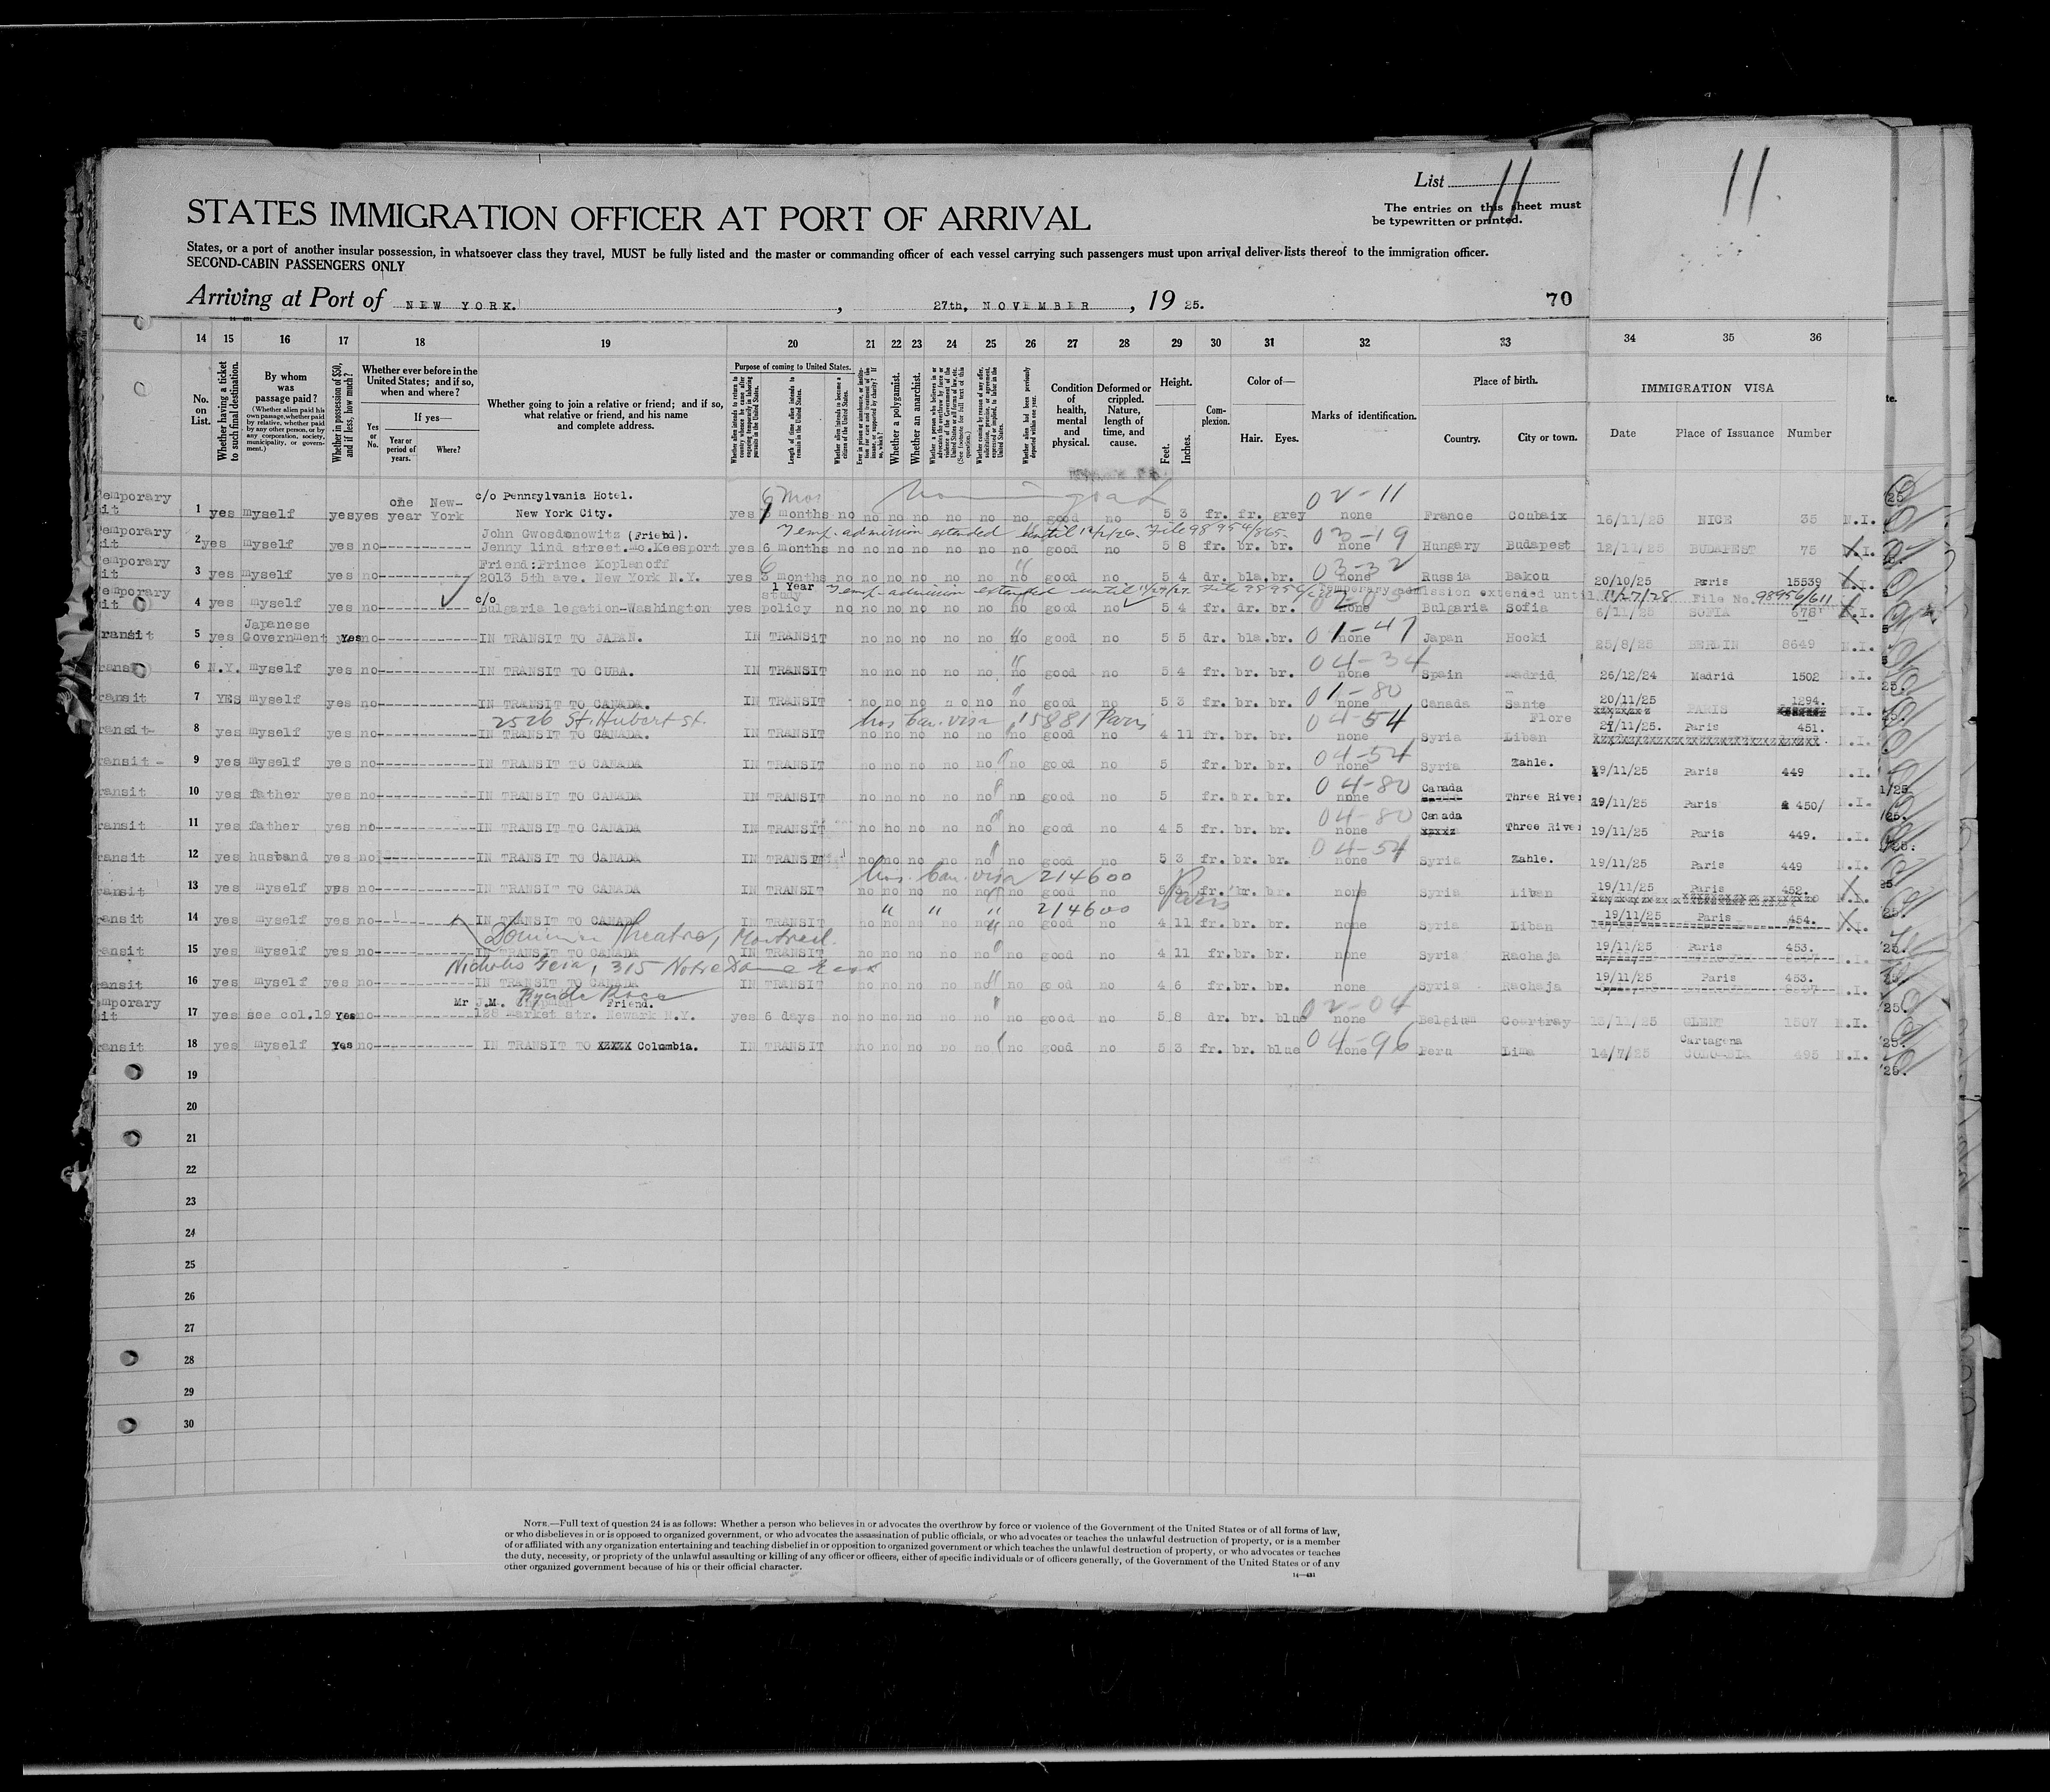 List 11
11.
The entries on this sheet must
be typewritten or printed.
STATES IMMIGRATION OFFICER AT PORT OF ARRIVAL
States, or a port of another insular possession, in whatsoever class they travel, MUST be fully listed and the master or commanding officer of each vessel carrying such passengers must upon arrival deliver lists thereof to the immigration officer.
SECOND-CABIN PASSENGERS ONLY
Arriving at Port of NEW YORK. , 27th, NOVEMBER , 19 25. 70
14 15 16 17 18 19 20 21 22 23 24 25 26 27 28 29 30 31 32 33 34 35 36
No. on List.
Whether having a ticket to such final destination.
By whom was passage paid?
(Whether alien paid his own passage, whether paid by relative, whether paid by any other person, or by any corporation, society, municipality, or government.)
Whether in possession of $50, and if less, how much?
Whether ever before in the United States; and if so, when and where?
Yes or No.
If yes—
Year or period of years.
Where?
Whether going to join a relative or friend; and if so, what relative or friend, and his name and complete address.
Purpose of coming to United States.
Length of time alien intends to remain in the United States.
Whether alien intends to become a citizen of the United States.
Whether a polygamist.
Whether an anarchist.
Condition of health, mental and physical.
Deformed or crippled. Nature, length of time, and cause.
Height.
Feet. Inches.
Complexion.
Color of—
Hair. Eyes.
Marks of identification.
Place of birth.
Country. City or town.
IMMIGRATION VISA
Date Place of Issuance Number
emporary
c/o Pennsylvania Hotel. 6 mos 02-11
1 yes myself yes yes one year New-York New York City. yes months no no no no no no no good no 5 3 fr. fr. grey none France Coubaix 16/11/25 NICE 35 N.I.
emporary John Gwosdonowitz (Friend). Temp. admission extended until 12/1/26. File 98954/865. 03-19
2 yes myself yes no Jenny lind street. Mc.Keesport yes 6 months no no no no no no no good no 5 8 fr. br. br. none Hungary Budapest 12/11/25 BUDAPEST 75 N.I.
emporary Friend:Prince Koplanoff 6 03-32
3 yes myself yes no 2013 5th ave. New York N.Y. yes 3 months no no no no no no no good no 5 4 dr. bla. br. none Russia Bakou 20/10/25 Paris 15539 N.I.
emporary c/o 1 Year study Temp. admission extended until 11/27/27. Temporary admission extended until 11/27/28 File No. 98956/611
4 yes myself yes no Bulgaria legation-Washington yes policy no no no no no no no good no 5 4 fr. dr. br. none Bulgaria Sofia 6/11/25 SOFIA N.I.
Japanese 01-47
transit 5 yes Government Yes no IN TRANSIT TO JAPAN. IN TRANSiT no no no no no no good no 5 5 dr. bla. br. none Japan Hocki 25/8/25 BERLIN 8649 N.I.
04-34
6 N.Y. myself yes no IN TRANSIT TO CUBA. IN TRANSIT no no no no no no good no 5 4 fr. br. br. none Spain Madrid 26/12/24 Madrid 1502 N.I.
01-80
ransit 7 YES myself yes no IN TRANSIT TO CANADA. IN TRANSIT no no no no no no good no 5 3 fr. br. br. none Canada Sante Flore 20/11/25 PARIS 1294. N.I.
2526 St. Hubert St. has Can. visa 15881 Paris 04-54
ransit 8 yes myself yes no IN TRANSIT TO CANADA. IN TRANSIT no no no no no no good no 4 11 fr. br. br. none Syria Liban 27/11/25. Paris 451. N.I.
04-54
ransit 9 yes myself yes no IN TRANSIT TO CANADA IN TRANSIT no no no no no no good no 5 fr. br. br. none Syria Zahle. 19/11/25 Paris 449 N.I.
04-80
ransit 10 yes father yes no IN TRANSIT TO CANADA IN TRANSIT no no no no no no good no 5 fr. br. br. none Canada Three River 19/11/25 Paris 450/ N.I.
04-80
ransit 11 yes father yes no IN TRANSIT TO CANADA IN TRANSIT no no no no no no good no 4 5 fr. br. br. none Canada Three River 19/11/25 Paris 449. N.I.
04-54
ransit 12 yes husband yes no IN TRANSIT TO CANADA IN TRANSIT no no no no no no good no 5 3 fr. br. br. none Syria Zahle. 19/11/25 Paris 449 N.I.
has Can. visa 214600 Paris
ransit 13 yes myself yes no IN TRANSIT TO CANADA IN TRANSIT no no no no no no good no 5 fr. br. br. none Syria Liban 19/11/25 Paris 452. N.I.
" " " 214600
ansit 14 yes myself yes no IN TRANSIT TO CANADA IN TRANSIT no no no no no no good no 4 11 fr. br. br. none Syria Liban 19/11/25 Paris 454. N.I.
Dominion Theatre, Montreal.
ransit 15 yes myself yes no IN TRANSIT TO CANADA IN TRANSIT no no no no no no good no 4 11 fr. br. br. none Syria Rachaja 19/11/25 Paris 453. N.I.
Nicholis Geia, 315 Notre Dame East
ansit 16 yes myself yes no IN TRANSIT TO CANADA IN TRANSIT no no no no no no good no 4 6 fr. br. br. none Syria Rachaja 19/11/25 Paris 453. N.I.
mporary Mr J.M. Friend. 02-04
17 yes see col.19 Yes no 128 Market str. Newark N.Y. yes 6 days no no no no no no no good no 5 8 dr. br. blue none Belgium Courtray 13/11/25 1507 N.I.
04-96 Cartagena
ransit 18 yes myself Yes no IN TRANSIT TO XXXXX Columbia. IN TRANSIT no no no no no no good no 5 3 fr. br. blue none Peru Lima 14/7/25 COLOMBIA 495 N.I.
19
20
21
22
23
24
25
26
27
28
29
30
NOTE.—Full text of question 24 is as follows: Whether a person who believes in or advocates the overthrow by force or violence of the Government of the United States or of all forms of law,
or who disbelieves in or is opposed to organized government, or who advocates the assassination of public officials, or who advocates or teaches the unlawful destruction of property, or is a member
of or affiliated with any organization entertaining and teaching disbelief in or opposition to organized government or which teaches the unlawful destruction of property, or who advocates or teaches
the duty, necessity, or propriety of the unlawful assaulting or killing of any officer or officers, either of specific individuals or of officers generally, of the Government of the United States or of any
other organized government because of his or their official character.
14—431